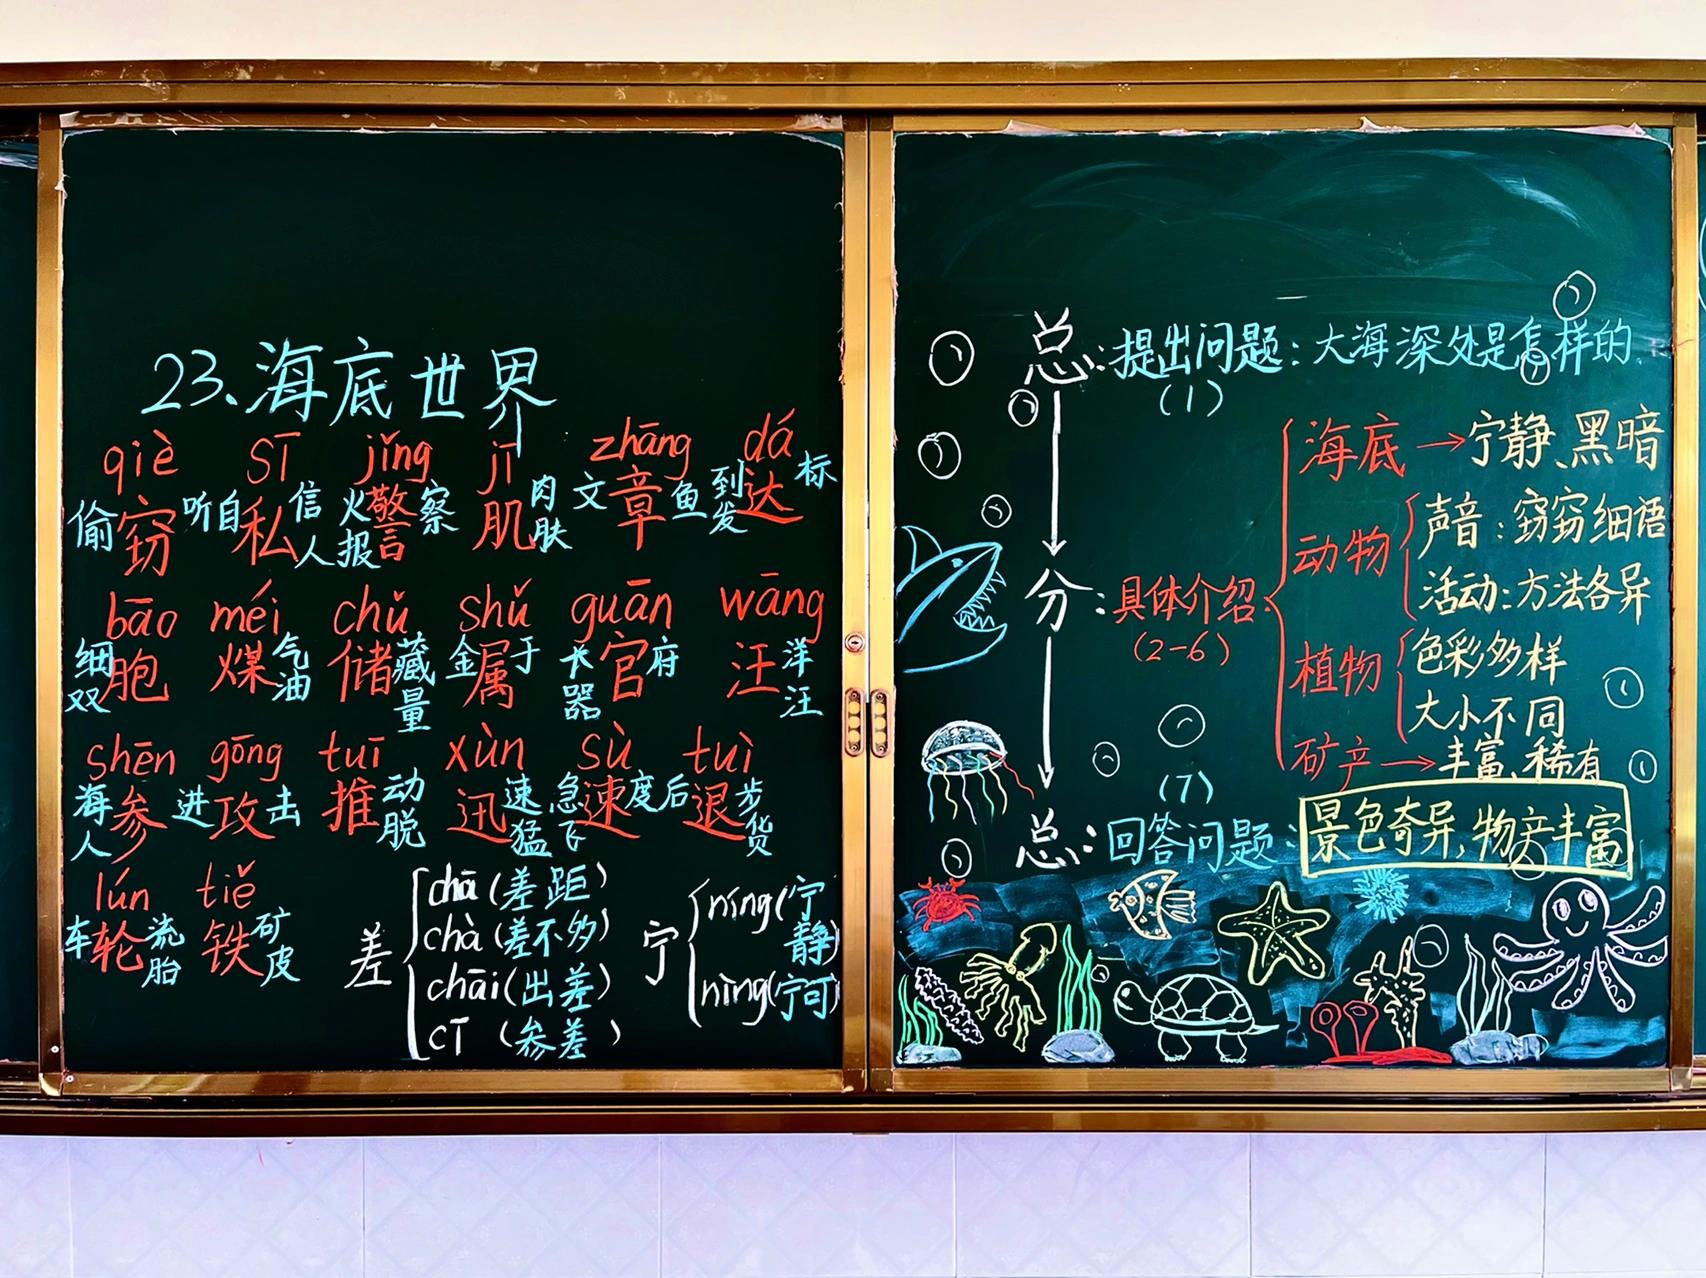 23.海底世界
qiè sī jǐng jī zhāng dá
偷窃听 自私信人 火报警察 肌肉肤 文章鱼 到发达标
bāo méi chǔ shǔ guān wāng
细双胞 煤气油 储藏量 金属于 器官府 汪洋汪
shēn gōng tuī xùn sù tuì
海人参 进攻击 推动脱 迅速猛 急飞速度 后退步货
lún tiě
车轮流胎 铁矿皮
差
chā(差距)
chà(差不多)
chāi(出差)
cī(参差)
宁
níng(宁静)
nìng(宁可)
总:提出问题:大海深处是怎样的
(1)
分:具体介绍:
(2-6)
海底→宁静、黑暗
动物
声音:窃窃细语
活动:方法各异
植物
色彩多样
大小不同
矿产→丰富、稀有
(7)
总:回答问题:景色奇异,物产丰富